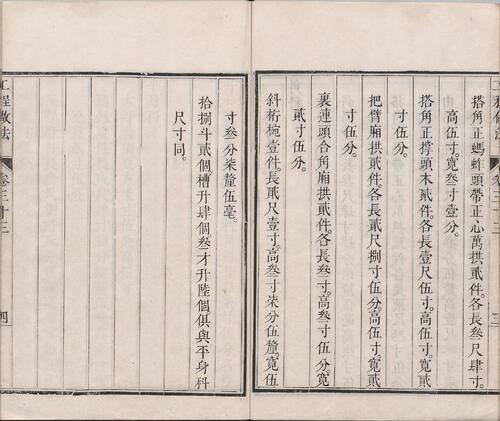 搭角正螞蚱頭帶正心萬拱貳件。各長叁尺肆寸。
高伍寸。寬叁寸壹分。
搭角正撐頭木貳件。各長壹尺伍寸。高伍寸。寬貳
寸伍分。
把臂廂拱貳件。各長貳尺捌寸伍分。高伍寸。寬貳
寸伍分。
裏連頭合角廂拱貳件。各長叁寸。高叁寸伍分。寬
貳寸伍分。
斜桁椀壹件。長貳尺壹寸。高叁寸柒分伍釐。寬伍
寸叁分柒釐伍毫。
拾捌斗貳個。槽升肆個。叁才升陸個。俱與平身科
尺寸同。
工程做法 卷三十三 四